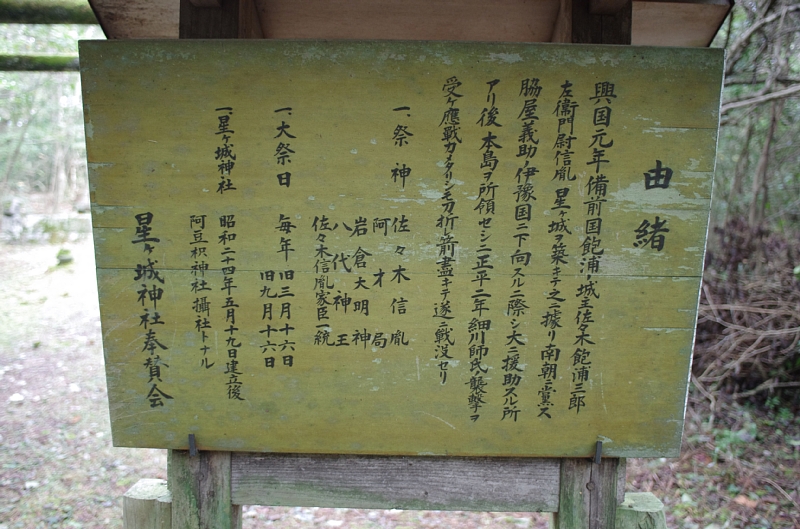 由緒
興国元年備前国飽浦ノ城主佐々木飽浦三郎
左衞門尉信胤星ヶ城ヲ築キテ之ニ據リ南朝ニ黨ス
脇屋義助ノ伊豫国ニ下向スルニ際シ大ニ援助スル所
アリ後本島ヲ所領セシニ正平二年細川師氏ノ襲撃ヲ
受ケ應戰力メタリシモ刀折レ箭盡キテ遂ニ戰没セリ
一、祭神 佐々木信胤
阿才局
岩倉大明神
八代神王
佐々木信胤家臣一統
一、大祭日 毎年旧三月十六日
旧九月十六日
一、星ヶ城神社 昭和二十四年五月十九日建立後
阿豆枳神社攝社トナル
星ヶ城神社奉賛会